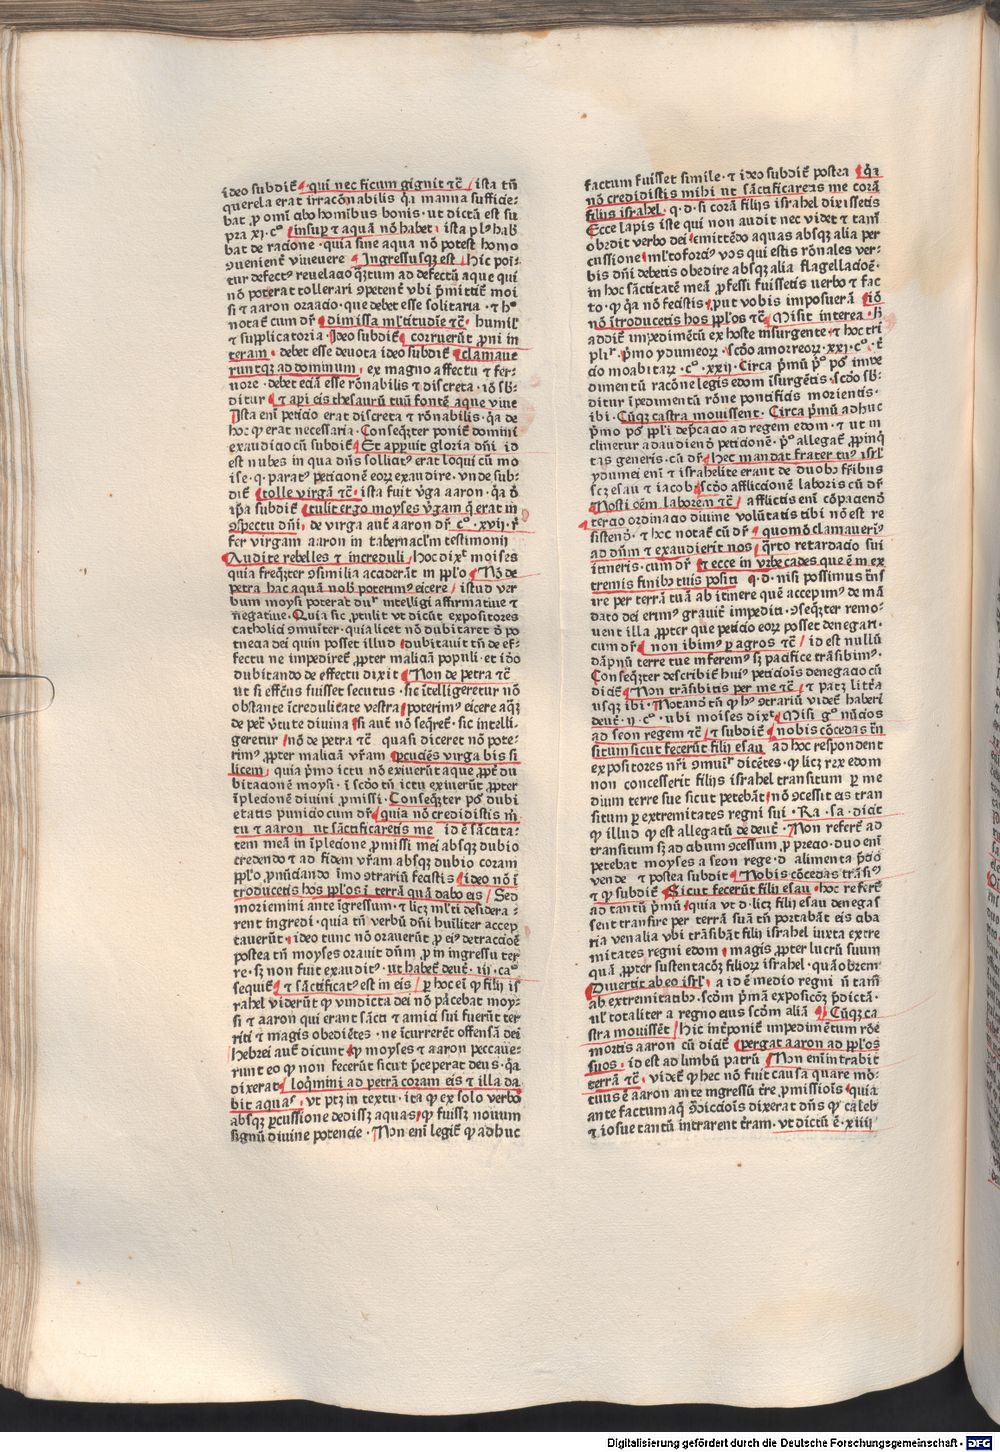 ideo subdit̄ · qui nec ficum gignit ⁊c̄ / ista tn̄
querela erat irracōnabilis qꝛ manna sufficie-
bat ꝓ omī cibo hominibus bonis · ut dictū est su
pra xj · c° insuꝑ ⁊ aquā nō habet · ista
bat de racione · quia sine aqua nō potest homo
ꝯuenient̄ viuere Ingressusqꝫ est / hic
tur defectꝰ reuelacio ad defectū aque qui
nō poterat tollerari ꝯpetent̄ vbi p̄mittit̄ moi
si ⁊ aaron oracio · que debet esse solitaria · ⁊ hͦ
notat̄ cum dr̄ dimissa ml̓titudīe ⁊c̄ · humil̓
⁊ supplicatoria · Ideo subdit̄ corruerūt ꝓni in
terram · debet esse deuota ideo subdit̄ clamaue
runtqꝫ ad dominum / ex magno affectu ⁊ fer-
uore · debet eciā esse rōnabilis ⁊ discreta · iō sb̓-
ditur / ⁊ api eis thesaurū tuū fontē aque viue
Ista eni peticio erat discreta ⁊ rōnabilis · qꝛ de
hoc ꝙ erat necessaria · Conseqn̄ter ponit̄ domini
exaudicio cū subdit̄ Et apꝑuit gloria dn̄i id
est nubes in qua dn̄s sollicitꝰ erat loqui cū mo
ise · q · paratꝰ peticionē eoꝝ exaudire · vnde sub-
dit̄ tolle virgā ⁊c̄ · ista fuit v̓ga aaron · qꝛ
ip̄a subdit̄ tulit ergo moyses v̓gam q̄ erat in
ꝯspectu dn̄i / de virga aut̄ aaron dr̄ c° · xvij · r̄
fer virgam aaron in tabernacl̓m testimonij
Audite rebelles ⁊ increduli / hoc dixᵗ moises
quia freqn̄ter ꝯsimilia acciderāt in ppl̓o Nū de
petra hac aquā nob̓ poterimꝰ eicere / istud ver
bum moysi poterat intelligi affirmatiue ⁊
negatiue · Quia sic ꝓtulit vt dicūt expositores
catholici ꝯmuniter · quia licet nō dubitaret ō po
tencia dei quin posset illud dubitauit tn̄ de ef-
fectu ne impediret̄ ꝓpter maliciā populi · et iō
dubitando de effectu dixit Non de petra ⁊c̄
ut si effēctꝰ fuisset secutus · sic ītelligeretur nō
obstante īcredulitate vestra poterimꝰ eicere aqꝫ
de petͣ v̓tute diuina si aut̄ nō seq̄ret̄ · sic intelli-
geretur / nō de petra ⁊c̄ quasi diceret nō pote-
rimꝰ ꝓpter maliciā vr̄am ꝑcuciēs virga bis si
licem / quia p̓mo ictu nō exiuerūt aque ꝓpt̄ du
bitacionē moysi · ī scd̓o tn̄ ictu exiuerūt ꝓpter
īplecionē diuini ꝓmissi · Conseqn̄ter poͦ dubi
etatis punicio cum dr̄ quia nō credidistis m̄
tu ⁊ aaron ut sāctificaretis me id ē sāctita-
tem meā in īplecione ꝓmissi mei absqꝫ dubio
credendo ⁊ ad fidem vr̄am absqꝫ dubio coram
ppl̓o ꝓnūciando īmo ꝯtrariū fecistis ideo nō ī
troducetis hos ppl̓os ī terrā quā dabo eis / Sed
moriemini ante īgressum · ⁊ licꝫ ml̓ti desidera-
rent ingredi · quia tn̄ verbū dn̄i hūiliter accep
tauerūt · ideo tunc nō orauerūt ꝓ eiꝰ detraccioē
postea tn̄ moyses orauit dn̄m ꝓ in ingressu ter
re · sꝫ non fuit exauditꝰ · ut habet̄ deut̄ · iij · caᵒ
sequit̄ ⁊ sāctificatꝰ est in eis / ꝑ hoc eī ꝙ filij is
rahel viderūt ꝙ vindicta dei nō ꝑcebat moy-
si ⁊ aaron qui erant sācti ⁊ amici sui fuerūt ter
riti ⁊ magis obediētes · ne īcurrerēt offensā dei
hebrei aut̄ dicunt ꝙ moyses ⁊ aaron peccaue-
runt eo ꝙ non fecerūt sicut p̄ceperat deus · qꝛ
dixerat loqͥmini ad petrā coram eis ⁊ illa da
bit aquaſ · vt ptꝫ in textu · ita ꝙ ex solo verbo
absqꝫ ꝑcussione dedissꝫ aquas ꝙ fuissꝫ nouum
signū diuine potencie · Non enī legit̄ ꝙ adhuc
factum fuisset simile · ⁊ ideo subdit̄ postea qꝛ
nō credidistis mihi ut sāctificaretis me corā
filijs israhel · q · d · si corā filijs israhel dixissetis
Ecce lapis iste qui non audit nec videt ⁊ tamē
obedit verbo dei emittēdo aquas absqꝫ alia per
cussione ml̓tofortiꝰ vos qui estis rōnales ver-
bis dn̄i debetis obedire absqꝫ alia flagellacioē ·
in hoc sāctitatē meā ꝓfessi fuissetis verbo ⁊ fac
to · ꝙ qꝛ nō fecistis put vobis imposuerā iō
nō ītroducetis hos ppl̓os ⁊c̄ Misit interea ·
addit̄ impedimētū ex hoste insurgente · ⁊ hoc tri
plr̄ · p̓mo ydumeoꝝ · scd̓o amorreoꝝ · xxj · c° · t̓
cio moabitaꝝ · c° · xxij · Circa p̓mū p°
dimentū racōne legis edom īsurgētis · scd̓o sb̓-
ditur īpedimentū rōne pontificis morientis ·
ibi · Cūqꝫ castra mouissent · Circa p̓mū adhuc
p̓mo ppl̓i dep̄cacio ad regem edom · ⁊ ut in
clinetur ad audiendū peticionē · p° allegat̄ ꝓpinq̄
tas generis · cū dr̄ hec mandat frater tuꝰ isrl̓
ydumei enī ⁊ israhelite erant de duobꝰ fr̄ibus
scꝫ esau ⁊ iacob scd̓o affliccionē laboris cū dr̄
Nosti oēm laborem ⁊c̄ / afflictis enī cōpaciendū
tercio ordinacio diuine volūtatis cui nō est re
sistend̄ · ⁊ hoc notat̄ cū dr̄ quomō clamauerīꝰ
ad dn̄m ⁊ exaudierit nos q̓rto retardacio sui
itineris · cum dr̄ ⁊ ecce in vrbe cades que ē in ex
tremis finibꝰ tuis positi q · d · nisi possimus trās
ire per terrā tuā ab itinere quē accepimꝰ de mā
dato dei erimꝰ grauit̄ impediti · ꝯseqn̄ter remo-
uent illa ꝓpter que peticio eoꝝ posset denegari ·
cum dr̄ non ibimꝰ ꝑ agros ⁊c̄ / id est nullū
dāpnū terre tue inferemꝰ sꝫ pacifice trāsibimꝰ ·
Conseqn̄ter describit̄ huiꝰ peticiōis denegacio cū
dicit̄ Non trāsibitis per me ⁊c̄ ⁊ patꝫ litt̄a
usqꝫ ibi · Notandū tn̄ ꝙ hͦ ꝯtrariū videt̄ haberi
deut̄ · ij · c° · ubi moises dixᵗ Misi gͦ nūcios
ad seon regem ⁊c̄ / ⁊ subdit̄ nobis cōcedas trā
situm sicut fecerūt filij esau ad hoc respondent
expositores nr̄i ꝯmuir̄ dicētes · ꝙ licꝫ rex edom
non concesserit filijs israhel transitum per me
dium terre sue sicut petebāt nō ꝯcessit eis tran
situm ꝑ extremitates regni sui · Ra · sa · dicit
ꝙ illud ꝙ est allegatū de deut̄ · Non refert̄ ad
transitum sꝫ ad cibum ꝯcessum ꝓ precio · duo enī
petebat moyses a seon rege · d alimenta p̄cio
vende ⁊ postea subdit Nobis cōcedas trāsiꝰ
⁊ ꝙ subdit̄ Sicut fecerūt filij esau · hoc refert̄
ad tantū p̓mū quia vt d · licꝫ filij esau denegas
sent tranſire per terrā suā tn̄ portabāt eis ciba
ria venalia vbi trāsibāt filij israhel iuxta extre
mitates regni edom magis ꝓpter lucrū suum
quā ꝓpter sustentacōꝫ filioꝝ israhel · quā obrem
Diuertit ab eo isrl̓ a id ē medio regni n̄ tamē
ab extremitatibꝰ · scd̓m p̓mā exposicōꝫ p̄dictā ·
ul̓ totaliter a regno eius scd̓m aliā Cūqꝫ ca
stra mouissēt / Hic int̓ponit̄ impedimētum rōe
mortis aaron cū dicit̄ pergat aaron ad ppl̓os
suos · id est ad limbū patrū Non enī intrabit
terrā ⁊c̄ · videt̄ ꝙ hec nō fuit causa quare mō-
tuus ē aaron ante ingressū tr̄re ꝓmissiōis quia
ante factum aq̄ ꝯdiccionis dixerat dn̄s ꝙ caleb
⁊ iosue tantū intrarent tr̄ram · vt dictū ē · xiiij
Digitalisierung gefördert durch die Deutsche Forschungsgemeinschaft - DFG